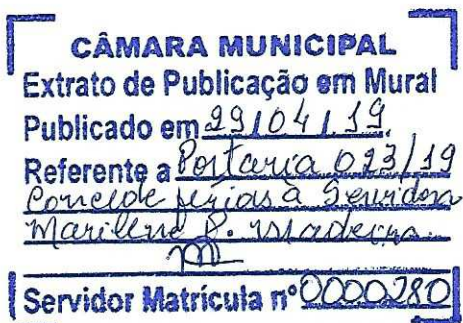 CÂMARA MUNICIPAL
Extrato de Publicação em Mural
Publicado em 29/04/19.
Referente a Portaria 023/19
Concede férias à Servidora
Marilene P. Madeira.
Servidor Matrícula nº 0000280